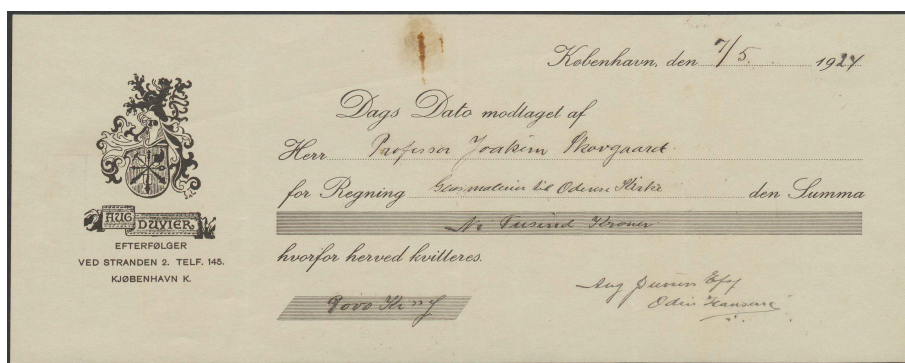 København, den 7/5. 1924
Dags Dato modtaget af
Herr Professor Joakim Skovgaard
for Regning Glasmalerier til Odense Kirke den Summa
Tusind Kroner
hvorfor herved kvitteres.
Kr
Aug Duvier Eff
Odin Hansen
AUG DUVIER
EFTERFØLGER
VED STRANDEN 2. TELF. 145.
KJØBENHAVN K.